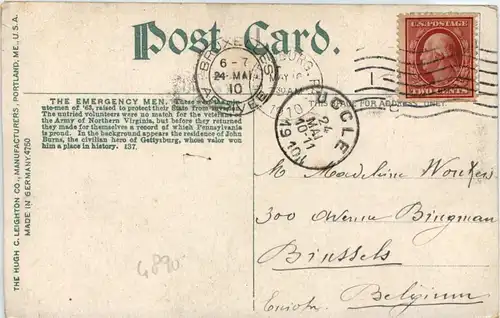 Post Card.
BRUXELLES
6-7
24-MAI
10
UCCLE
24
MAI
10-11
1910
U.S. POSTAGE
TWO CENTS
THE EMERGENCY MEN.
ute-men of '63, raised to protect their State from
The untried volunteers were no match for the veterans of
the Army of Northern Virginia, but before they returned
they made for themselves a record of which Pennsylvania
is proud. In the background appears the residence of John
Burns, the civilian hero of Gettysburg, whose valor won
him a place in history. 137.
SPACE FOR ADDRESS ONLY.
THE HUGH C. LEIGHTON CO., MANUFACTURERS, PORTLAND, ME., U.S.A.
MADE IN GERMANY 4750
M. Madeleine
300 Avenue
Brussels
Belgium
6890